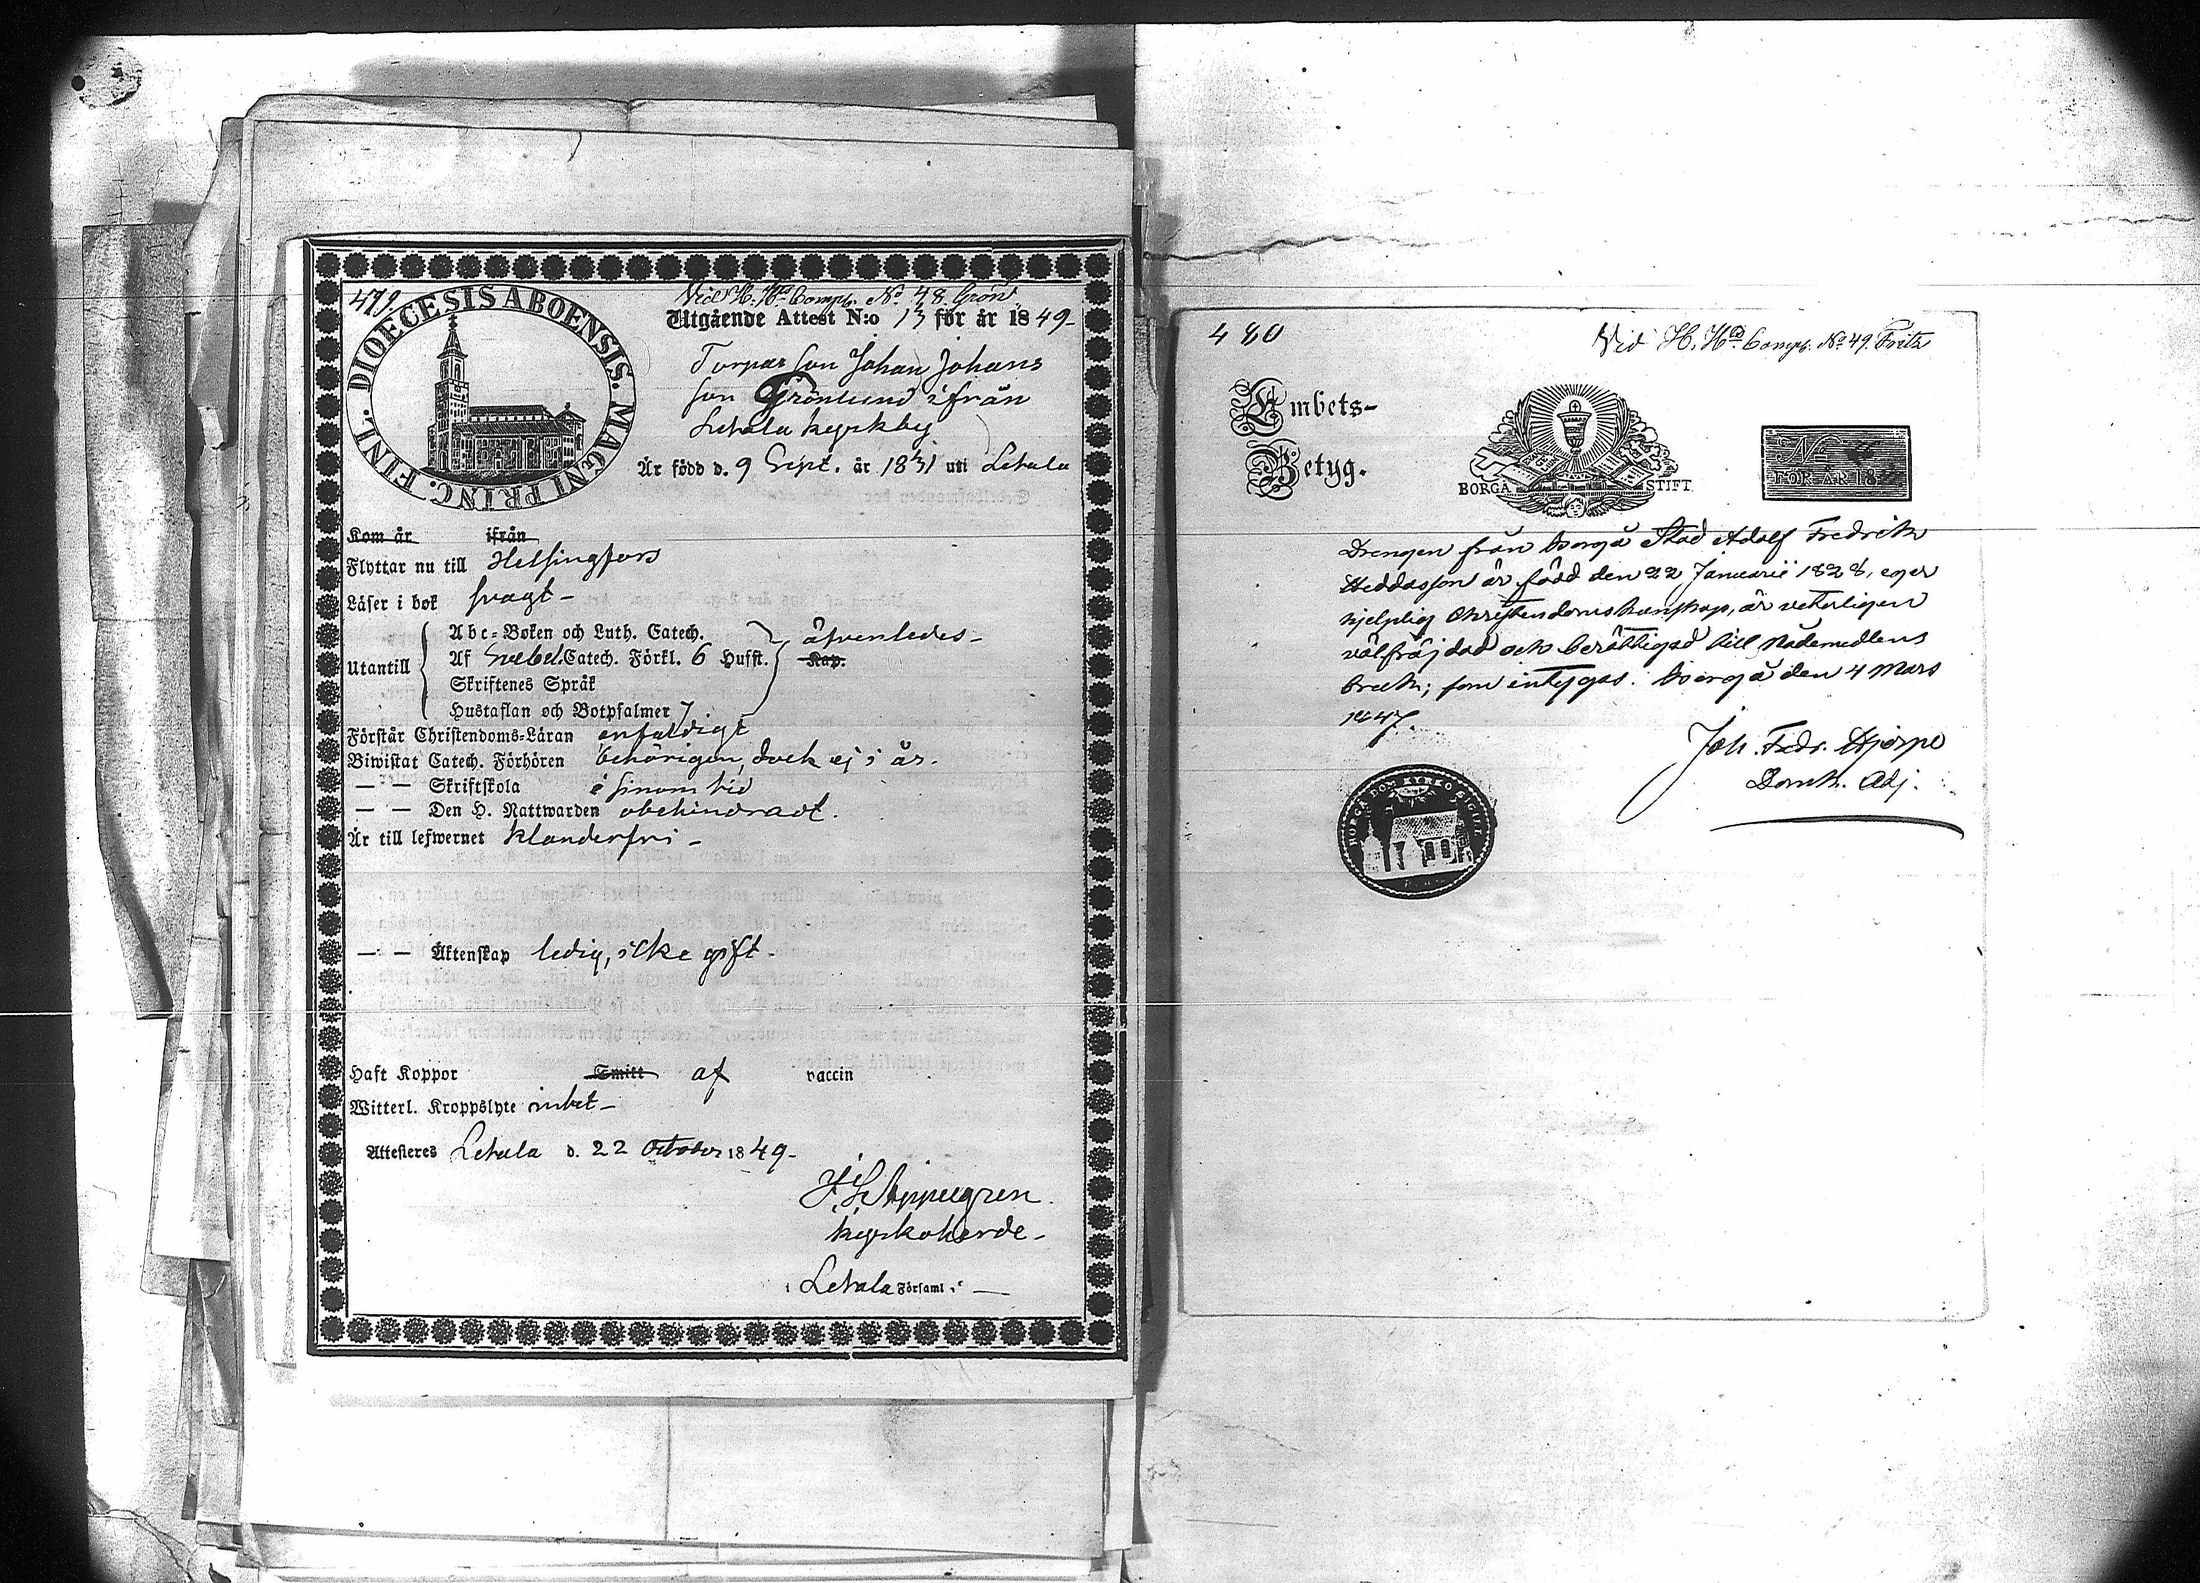 479.
DIOECESIS ABOENSIS. MAGNI PRINC. FINL.
Vid H. Hd. Comp. No 48. Grön
Utgående Attest N:o 13 för år 1849-
Torpar son Johan Johans
son Grönlund ifrån
Letala kyrkby
Är född d. 9 Sept. år 1831 uti Letala
Kom år ifrån
Flyttar nu till Helsingfors
Läser i bok svagt-
Utantill
Abc-Boken och Luth. Catech.
Af Svebel. Catech. Förkl. 6 Hufst.
Skriftenes Språk
Hustaflan och Botpsalmer 7
äfvenledes-
Kap.
Förstår Christendoms-Läran enfaldigt
Biwistat Catech. Förhören behörigen, dock ej i år.
— — Skriftskola i sinom tid
— — Den H. Nattwarden obehindradt.
Är till lefwernet klanderfri-
— — Äktenskap ledig, icke gift-
Haft Koppor Smitt af vaccin
Witterl. Kroppslyte intet-
Attesteres Letala d. 22 October 1849-
Kyrkoherde-
i Letala Församl.
480
Vid H. Hd. Comp. No 49. Fritz
Embets-
Betyg.
BORGÅ STIFT
No
FÖR ÅR 18
Drengen från Borgå Stad Adolf Fredrik
Heddasson är född den 22 Januarii 1828, eger
hjelplig Christendomskunskap, är veterligen
välfräjdad och berättigad till Nådemedlens
bruk; som intygas. Borgå den 4 Mars
1847.
Joh. Fedr. Hjerpe
Domk. Adj.
BORGÅ DOM KYRKO SIGILL